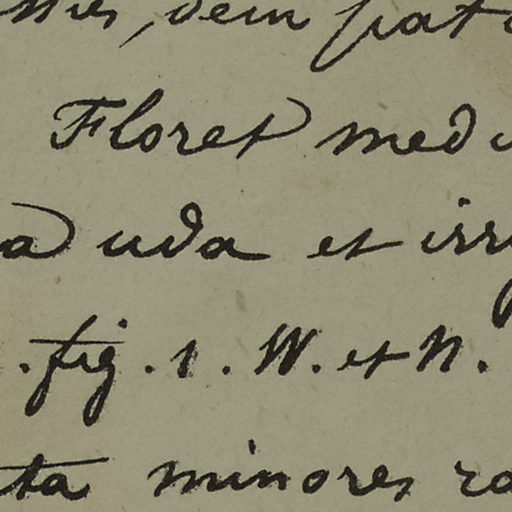 dein pat
Floret med
a uda et irr
. fig. 1. W. et N.
ta minores ra